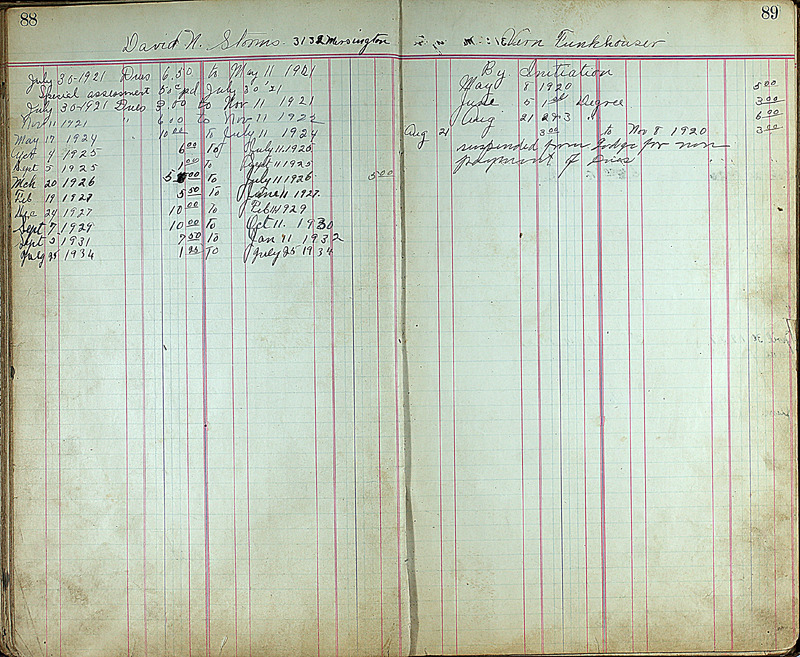 88
David N. Storms. 3132 Mersington
July 30-1921 Dues 6.50 to May 11 1921
Special assessment 50c pd July 30 21
July 30-1921 Dues 3.00 to Nov 11 1921
Nov 11 1921 " 6.00 to Nov 11 1922
May 17 1924 10.00 To July 11 1924
Oct 9 1925 6.00 To July 11 1925
Sept 5 1925 1.00 To Sept 11 1925
Mch 20 1926 5.00 To July 11 1926 5.00
Feb 19 1927 5.50 To June 11 1927
Dec 24 1927 10.00 To Feb 1929
Sept 7 1929 10.00 To Oct 11. 1930
Sept 5 1931 7.50 To Jan 11 1932
July 25 1934 1.25 To July 25 1934
89
Vern Funkhouser
By Initiation
May 8 1920 5.00
June 5 1st Degree 3.00
Aug 21 2&3 " 6.00
Aug 21 3.00 to Nov 8 1920 3.00
suspended from Lodge for non
payment of Dues